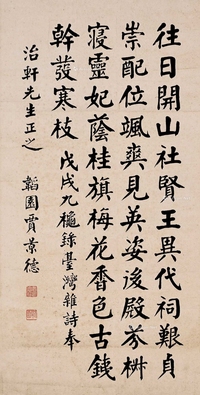 往日開山社賢王異代祠艱貞
崇配位颯爽見英姿後殿芬楙
寢靈妃蔭桂旗梅花香色古銕
幹發寒枝 戊戌九秋錄臺灣雜詩奉
治軒先生正之 韜園賈景德